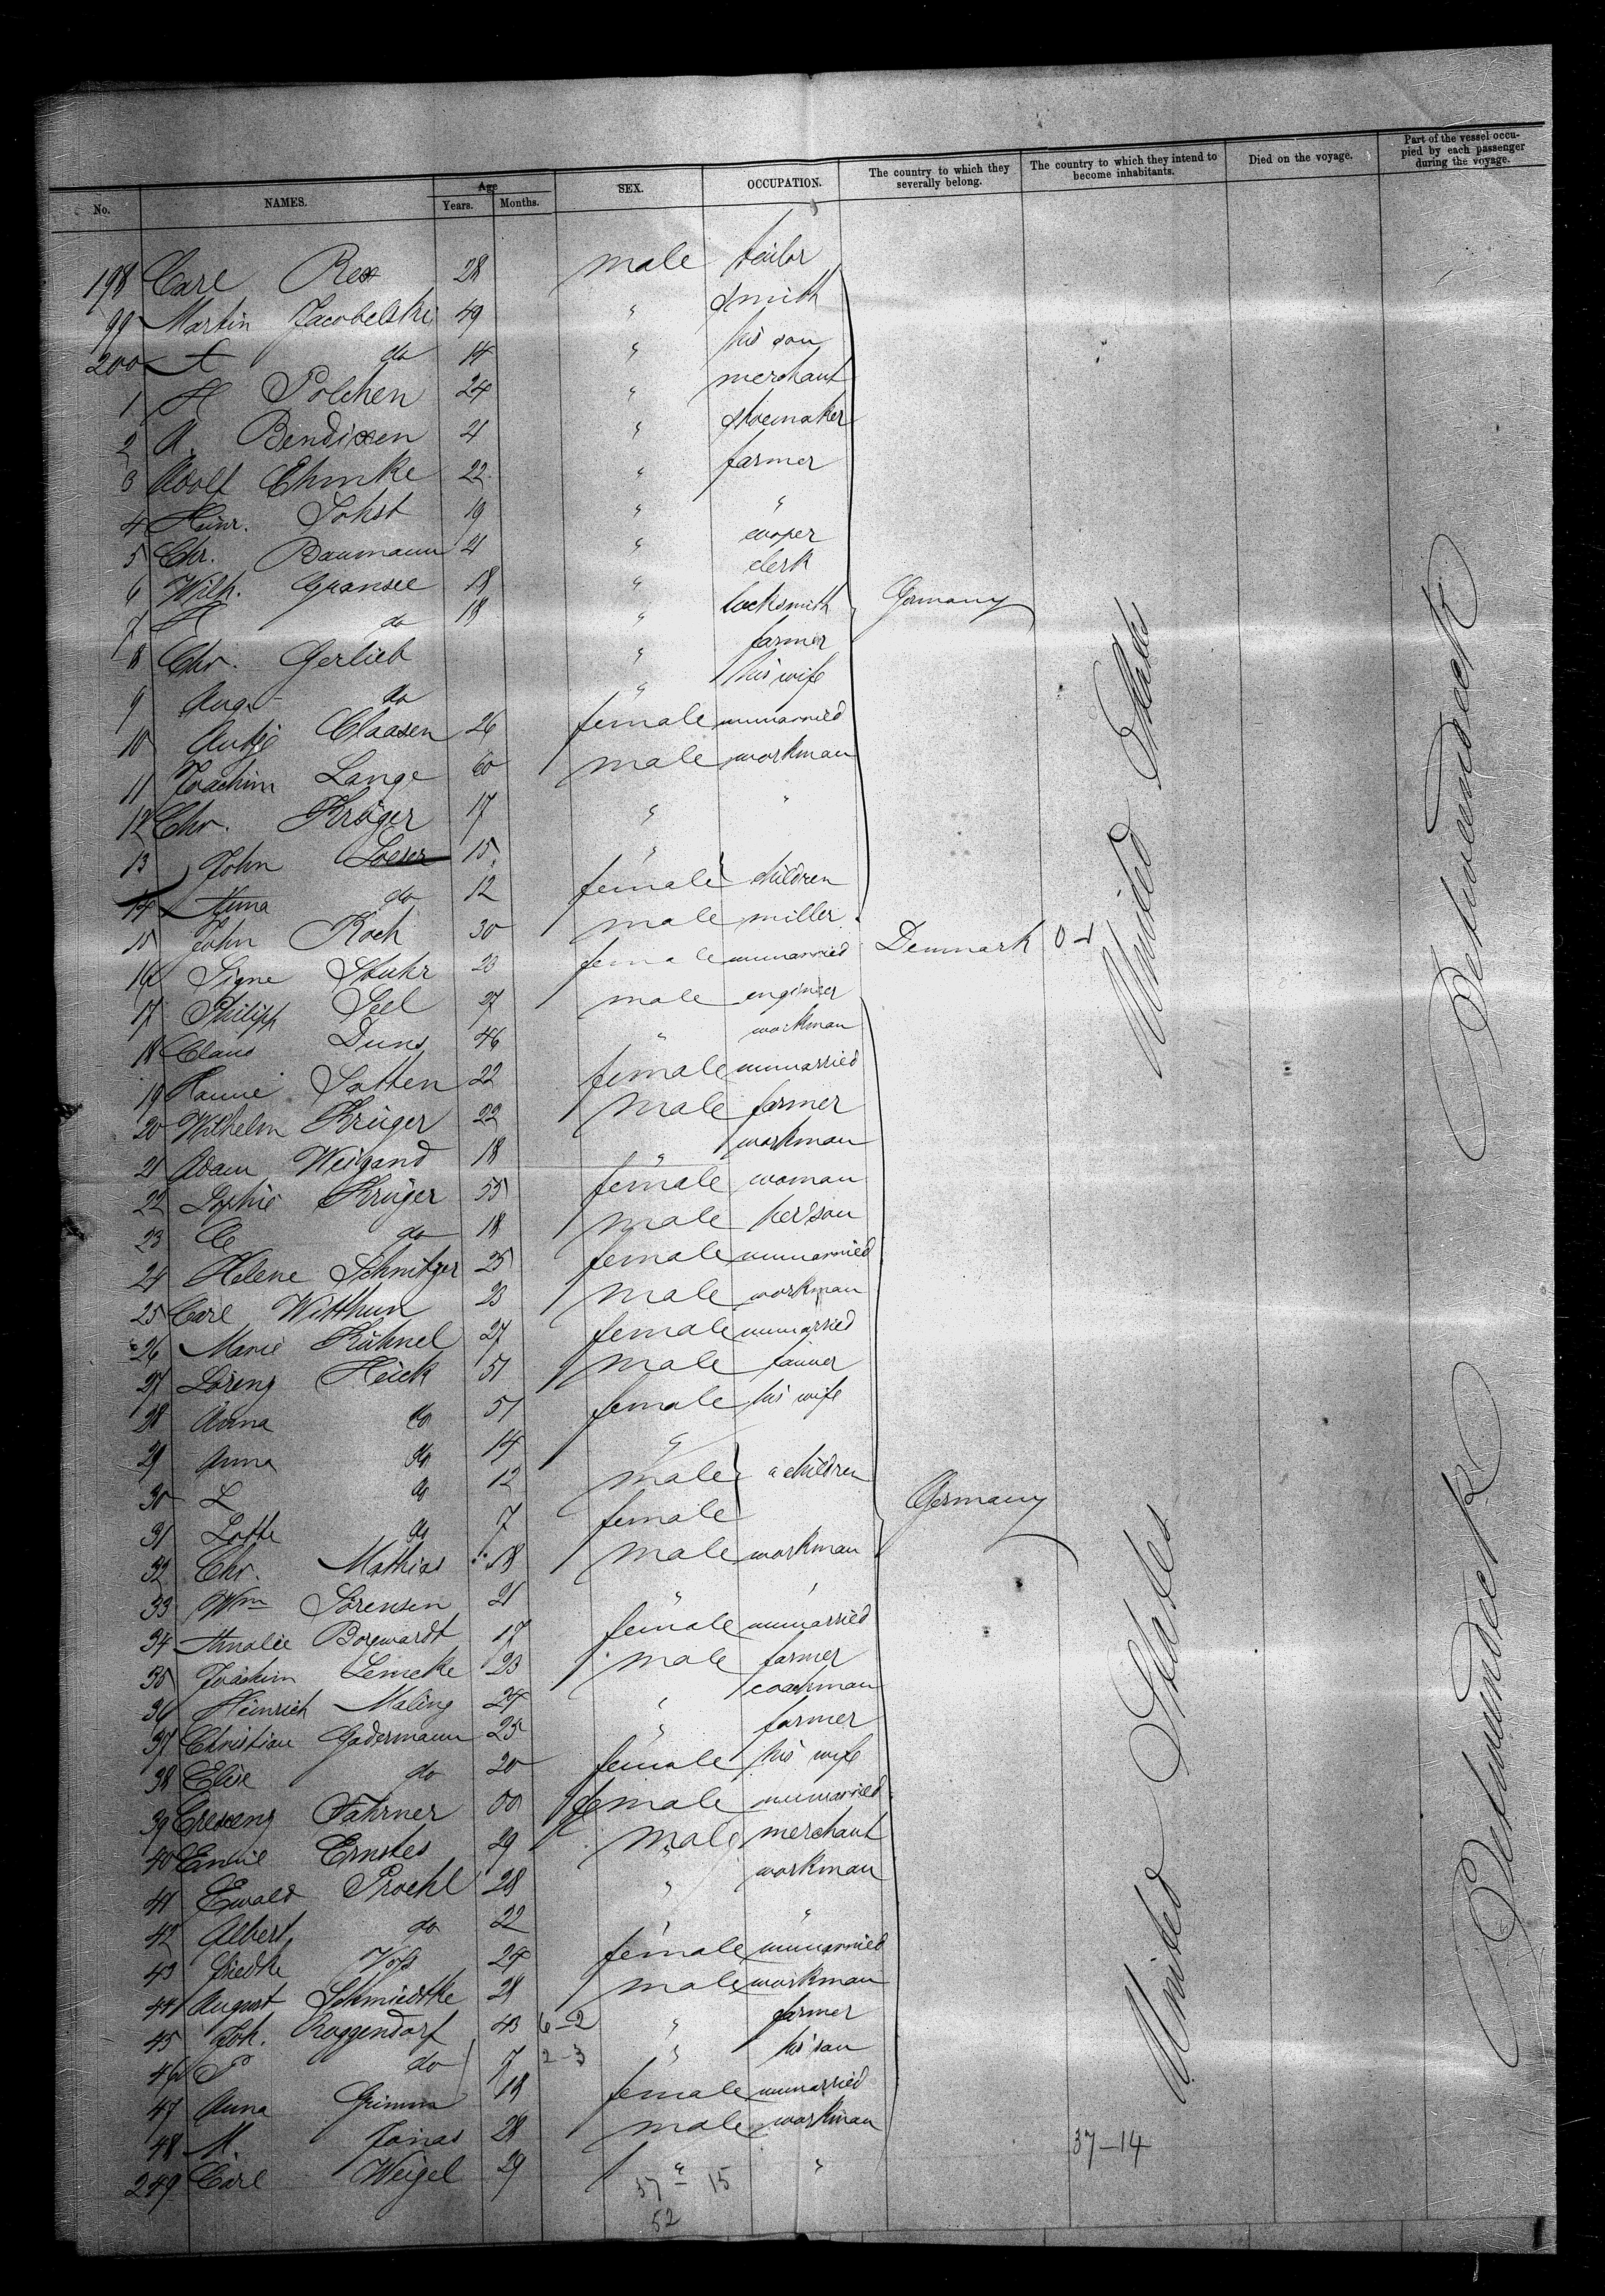 No. NAMES. Age Years. Months. SEX. OCCUPATION. The country to which they severally belong. The country to which they intend to become inhabitants. Died on the voyage. Part of the vessel occupied by each passenger during the voyage.
198 Carl Rex 28 male tailor
99 Martin Jacobelski 49 " smith
200 A do 14 " his son
1 H Polchen 24 " merchant
2 A. Bendixen 21 " shoemaker
3 Adolf Ehmke 22 " farmer
4 Heinr. Sohst 19 " "
5 Chr. Baumann 21 " cooper
6 Wilh. Gransee 18 " clerk
7 H do 18 " locksmith Germany
8 Chr. Gerlieb " farmer
9 Aug. do " his wife
10 Antje Claasen 26 female unmarried
11 Joachim Lange 60 male workman
12 Chr. Krüger 17 " "
13 John Loeser 15 "
14 Anna do 12 female children
15 John Koch 30 male miller
16 Signe Stuhr 20 female unmarried Denmark 0-1
17 Philipp Seel 27 male engineer
18 Claus Duns 46 " workman
19 Hanne Satten 22 female unmarried
20 Wilhelm Krüger 22 male farmer
21 Adam Weigand 18 " workman
22 Sophie Krüger 55 female woman
23 C do 18 male her son
24 Helene Schnitger 25 female unmarried
25 Carl Witthun 23 male workman
26 Marie Kühnel 27 female unmarried
27 Lorenz Heick 51 male farmer
28 Anna do 51 female his wife
29 Anna do 14 "
30 L do 12 male children
31 Lotte do 7 female Germany
32 Chr. Mathias 18 male workman
33 Wm Sörensen 21 " "
34 Amalie Borgwardt 17 female unmarried
35 Joachim Lemcke 23 male farmer
36 Heinrich Maling 24 " coachman
37 Christian Gadermann 25 " farmer
38 Elise do 20 female his wife
39 Crescenz Fahrner female unmarried
40 Emile Ernstes 29 male merchant
41 Ewald Proehl 28 " workman
42 Albert do 22 " "
43 Friedke Voss 24 female unmarried
44 August Schmiedtke 28 male workman
45 Joh. Roggendorf 43 6-2 " farmer
46 P do 7 2-3 " his son
47 Anna Grimm 18 female unmarried
48 M. Jonas 28 male workman
249 Carl Weigel 29 " "
United States
United States
37-14
37-15
52